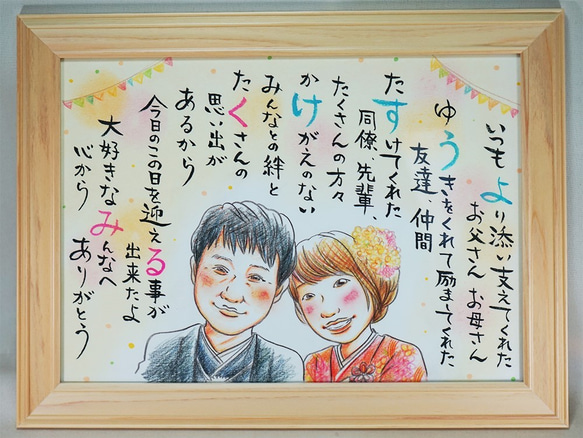 いつもより添い支えてくれた
お父さんお母さん
ゆうきをくれて励ましてくれた
友達、仲間
たすけてくれた
同僚、先輩、
たくさんの方々
かけがえのない
みんなとの絆と
たくさんの
思い出が
あるから
今日のこの日を迎える事が
出来たよ
大好きなみんなへ
心から
ありがとう